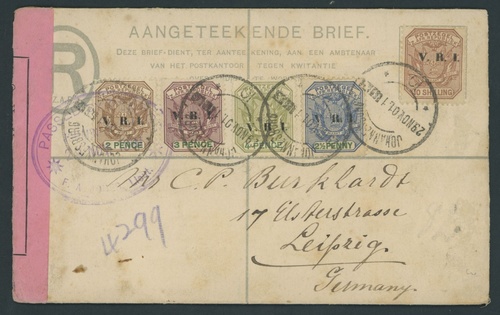 AANGETEEKENDE BRIEF.
DEZE BRIEF DIENT, TER AANTEEKENING, AAN EEN AMBTENAAR
VAN HET POSTKANTOOR TEGEN KWITANTIE
R
V. R. I.
V. R. I.
V. R. I.
V. R. I.
V. R. I.
2 PENCE
3 PENCE
2½ PENNY
10 SHILLING
29 NOV 01
JOHANNESBURG
PASS
4299
Mr C. P. Burkhardt
17 Elsterstrasse
Leipzig.
Germany.